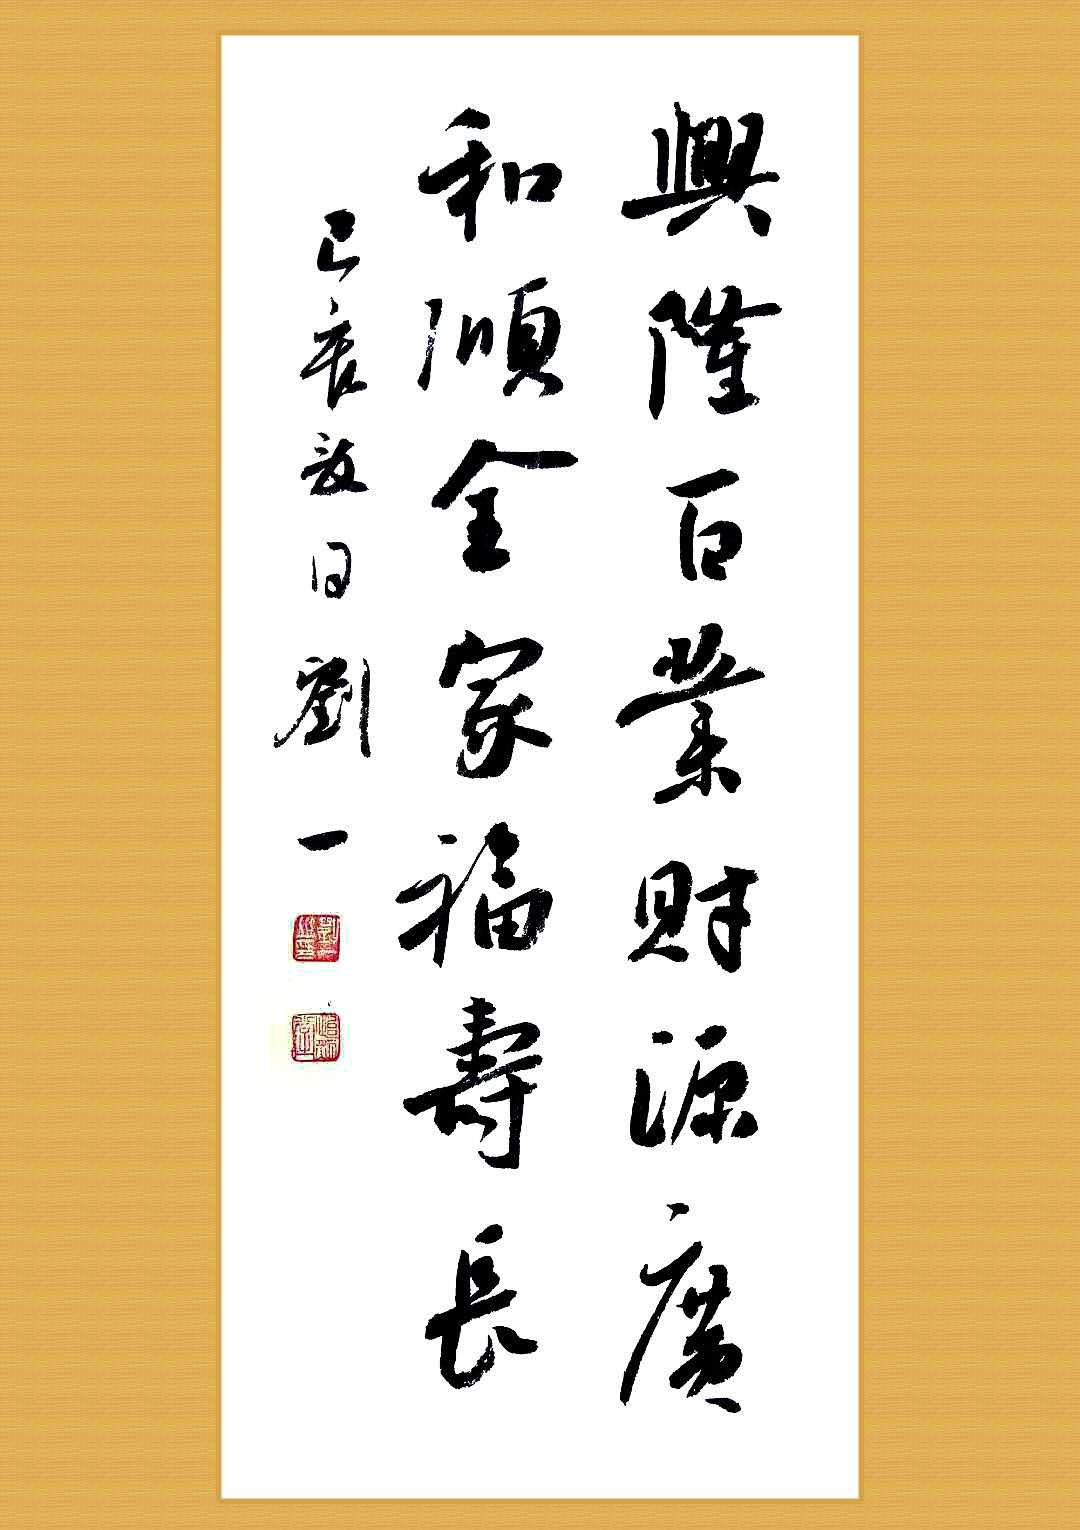 興隆百業財源廣
和順全家福壽長
己亥敬日劉一